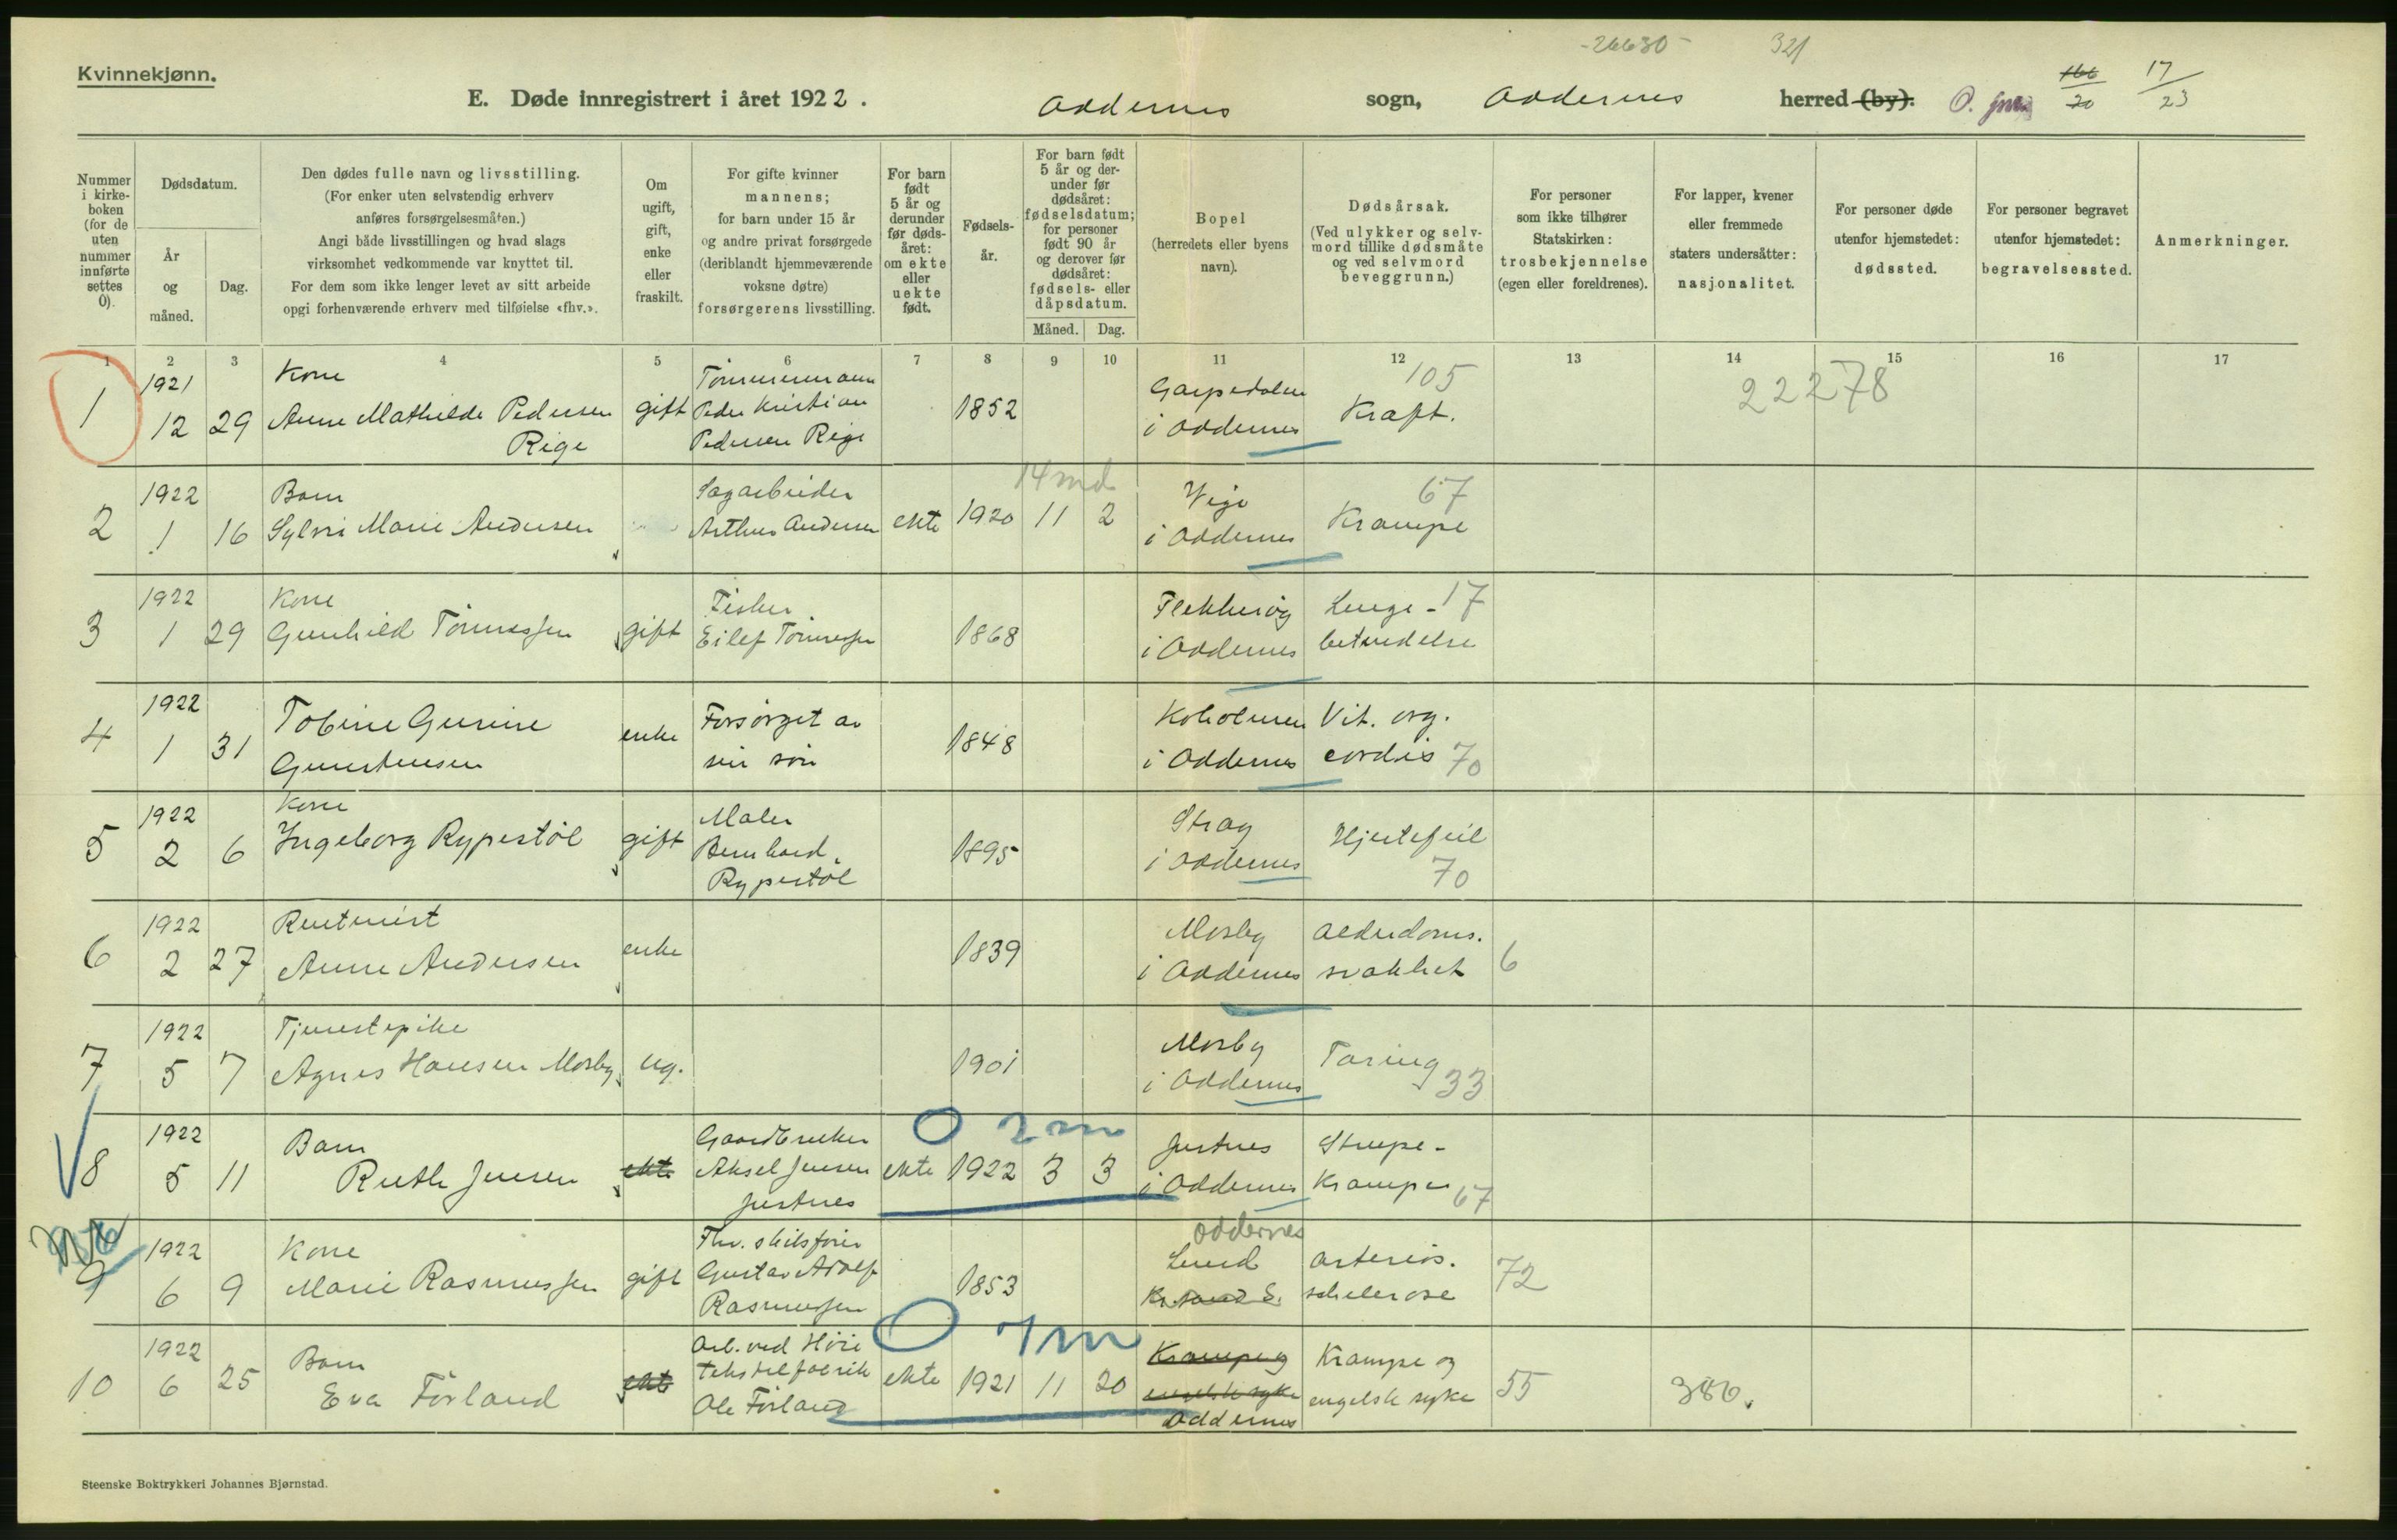 -26630- 321
Kvinnekjønn.
E. Døde innregistrert i året 1922. Oddernes sogn, Oddernes herred (by). 166/20 17/23
Nummer i kirkeboken (for de uten nummer innførte settes 0).
Dødsdatum.
År og måned.
Dag.
Den dødes fulle navn og livsstilling.
(For enker uten selvstendig erhverv
anføres forsørgelsesmåten.)
Angi både livsstillingen og hvad slags
virksomhet vedkommende var knyttet til.
For dem som ikke lenger levet av sitt arbeide
opgi forhenværende erhverv med tilføielse «fhv.».
Om ugift, gift, enke eller fraskilt.
For gifte kvinner
mannens;
for barn under 15 år
og andre privat forsørgede
(deriblandt hjemmeværende
voksne døtre)
forsørgerens livsstilling.
For barn født 5 år og derunder før dødsåret: om ekte eller uekte født.
Fødselsår.
For barn født 5 år og derunder før dødsåret: fødselsdatum; for personer født 90 år og derover før dødsåret: fødsels- eller dåpsdatum.
Måned. Dag.
Bopel
(herredets eller byens
navn).
Dødsårsak.
(Ved ulykker og selvmord tillike dødsmåte
og ved selvmord
beveggrunn.)
For personer
som ikke tilhører
Statskirken:
trosbekjennelse
(egen eller foreldrenes).
For lapper, kvener
eller fremmede
staters undersåtter:
nasjonalitet.
For personer døde
utenfor hjemstedet:
dødssted.
For personer begravet
utenfor hjemstedet:
begravelsessted.
Anmerkninger.
1 2 3 4 5 6 7 8 9 10 11 12 13 14 15 16 17
1921 Kone Tømmermann 105 22278
1 12 29 Anne Mathilde Pedersen gift Peder Kristian 1852 i Oddernes Kræft.
Rige Pedersen Rige
14 md
1922 Barn Sagarbeider Vige 67
2 1 16 Sylvi Marie Andersen Arthur Andersen ekte 1920 11 2 i Oddernes Krampe
1922 Kone Fisker Flekkerøy Lunge- 17
3 1 29 Gunhild Tønnessen gift Eilef Tønnessen 1868 i Oddernes betendelse
1922 Tobine Gurine Forsørget av Koholmen Vit. org.
4 1 31 Gunstensen enke sin søn 1848 i Oddernes cordis 70
1922 Kone Maler Strag Hjertefeil
5 2 6 Ingeborg Rypestøl gift Bernhard 1895 i Oddernes 70
Rypestøl
1922 Rentenist Mosby Alderdoms.
6 2 27 Anne Andersen enke 1839 i Oddernes svakhet 6
1922 Tjenestepike Mosby Tæring
7 5 7 Agnes Hansen Mosby ug. 1901 i Oddernes 33
0 2 m
1922 Barn Gaardbruker Justnes Strupe-
8 5 11 Ruth Jensen ekte Aksel Jensen ekte 1922 3 3 i Oddernes Krampe 67
Justnes
Oddernes
1922 Kone Fhv. skibsfører Lund arterios.
9 6 9 Marie Rasmussen gift Gustav Adolf 1853 Kr.sand S. schelerose 72
Rasmussen
0 7 m
1922 Barn Arb. ved Høie Krampe og Krampe og
10 6 25 Eva Førland ekte tekstilfabrik ekte 1921 11 20 engelsk syke engelsk syke 55 386.
Ole Førland Oddernes
Steenske Boktrykkeri Johannes Bjørnstad.